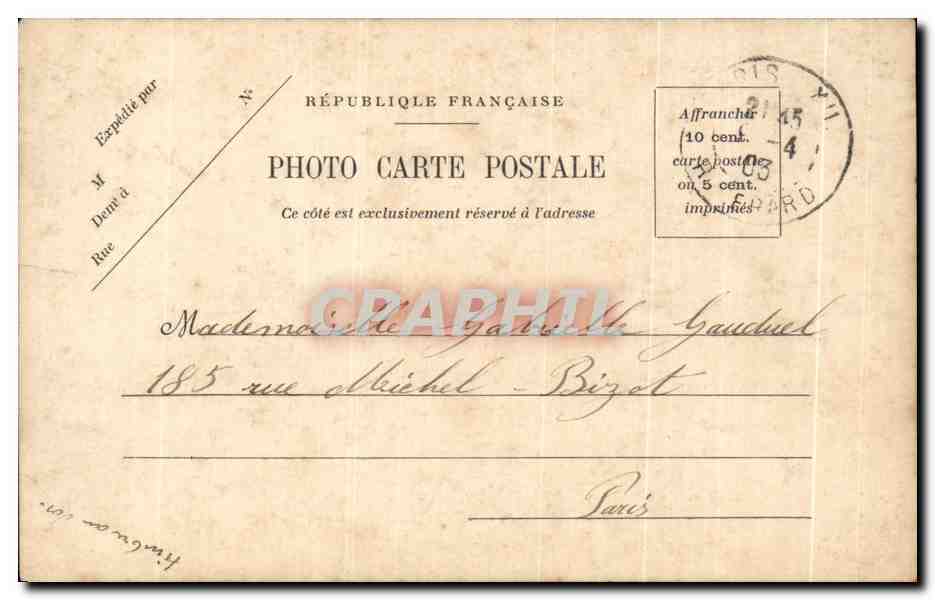 Expédié par
M
Demt à
Rue
No
RÉPUBLIQUE FRANÇAISE
PHOTO CARTE POSTALE
Ce côté est exclusivement réservé à l'adresse
Affranchir
10 cent.
carte postale
ou 5 cent.
imprimés
PARIS XII
21 45
-4
03
R. ERARD
CRAPHIL
Mademoiselle Gabrielle Gauduel
185 rue Michel-Bizot
Paris
timbre au